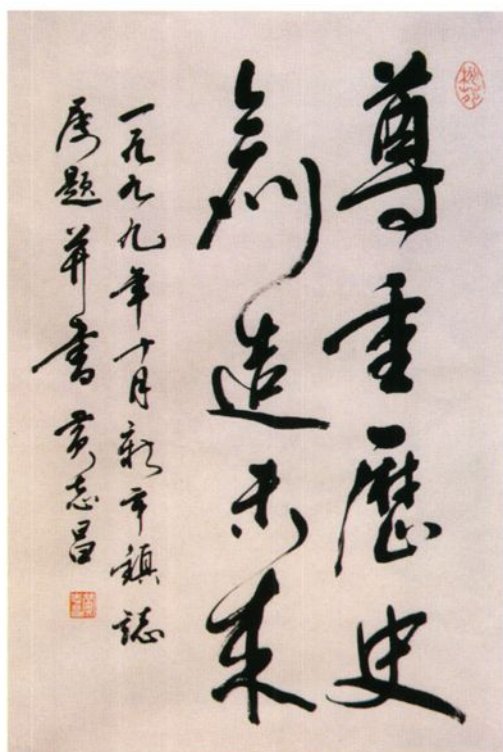 尊重歷史
創造未来
一九九九年十月新市鎮誌
属題并書 黄志昌